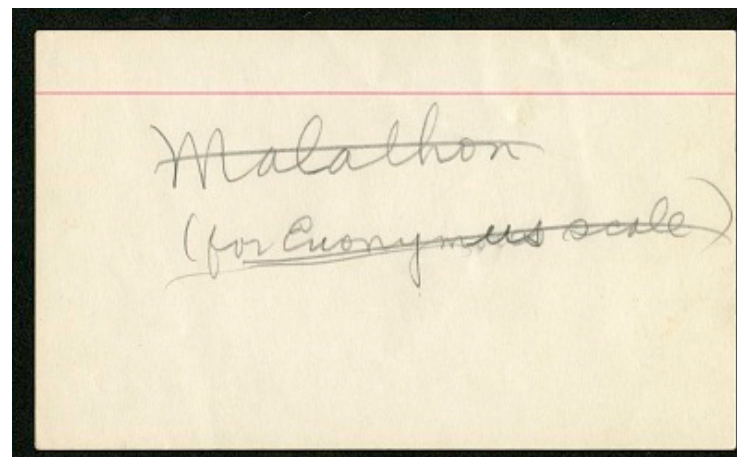 Malathon
(for Euonymus scale)